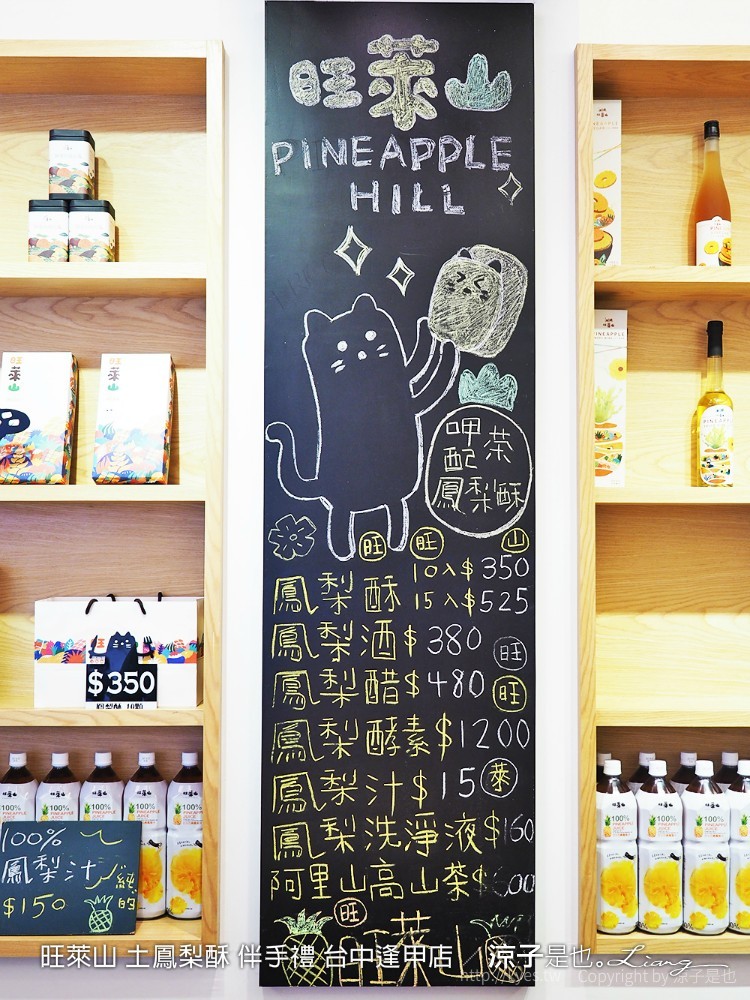 旺萊山
PINEAPPLE
HILL
呷茶
配
鳳梨酥
旺 旺 山
鳳梨酥 10入$350
15入$525
鳳梨酒$380
旺
鳳梨醋$480
旺
鳳梨酵素$1200
鳳梨汁$15
萊
鳳梨洗淨液$160
阿里山高山茶$600
旺
旺萊山
旺萊山
旺萊山
$350
鳳梨酥 10顆
100%
100%
100%
100%
100%
鳳梨汁
純的
$150
PINEAPPLE
100%
100%
100%
旺萊山 土鳳梨酥 伴手禮 台中逢甲店 涼子是也。Liang
Copyright by 涼子是也